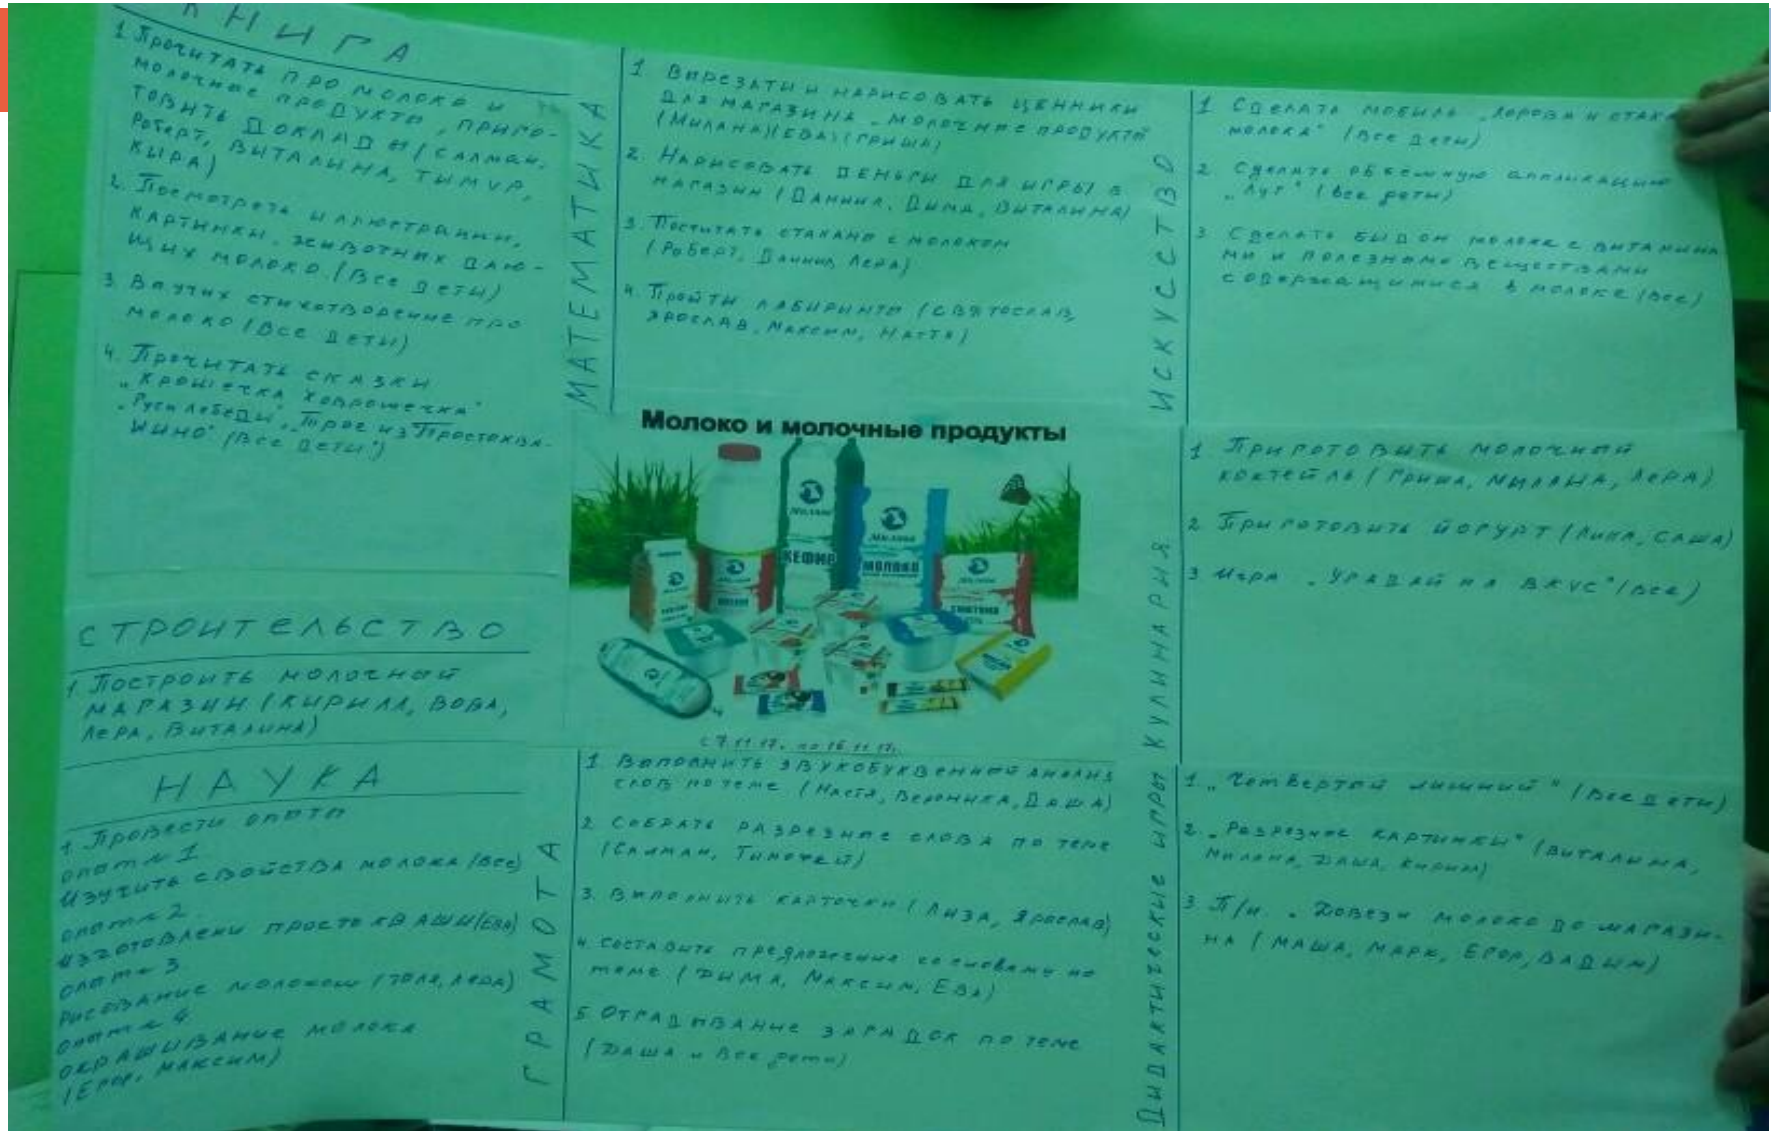 КНИГА
1 Прочитать про молоко и
молочные продукты, приго-
товить доклады (Салман,
Роберт, Виталина, Тимур,
Кира)
2. Посмотреть иллюстрации,
картинки, животных даю-
щих молоко (Все дети)
3 Выучих стихотворение про
молоко (Все дети)
4. Прочитать сказки
"Крошечка Хаврошечка"
"Гуси лебеди", "Трое из Простоква-
шино" (Все дети)
СТРОИТЕЛЬСТВО
1 Построить молочный
магазин (Кирилл, Вова,
Лера, Виталина)
НАУКА
1 Провести опыты
опыт № 1
Изучить свойства молока (Все)
опыт № 2
изготовлени простокваши (Ева)
опыт № 3
рисование молоком (Лера)
опыт № 4
окрашивание молока
(Егор, Максим)
МАТЕМАТИКА
1 Вырезать и нарисовать ценники
для магазина "молочные продукты"
(Милана) (Ева) (Гриша)
2. Нарисовать деньги для игры в
магазин (Даниил, Дима, Виталина)
3. Посчитать стаканы с молоком
(Роберт, Даниил, Лера)
4. Пройти лабиринты (Святослав,
Ярослав, Максим, Настя)
Молоко и молочные продукты
КЕФИР
МОЛОКО
СМЕТАНА
с 7.11.17. по 16.11.17.
ГРАМОТА
1. Выполнить звукобуквенный анализ
слов по теме (Настя, Вероника, Даша)
2 Собрать разрезные слова по теме
(Салман, Тимофей)
3. Выполнить карточки (Лиза, Ярослав)
4. Составить предложения со словами по
теме (Дима, Максим, Ева)
5. Отгадывание загадок по теме
(Даша и Все дети)
ИСКУССТВО
1 Сделать мобиль "Корова и стакан
молока" (Все дети)
2 Сделать объёмную аппликацию
"Луг" (Все дети)
3 Сделать бидон молока с витамина
ми и полезными веществами
содержащимися в молоке (Все)
КУЛИНАРИЯ
1 Приготовить молочный
коктейль (Гриша, Милана, Лера)
2 Приготовить йогурт (Лика, Саша)
3 Игра "Угадай на вкус" (Все)
Дидактические игры
1. "Четвертый лишний" (Все дети)
2. "Разрезные картинки" (Виталина,
Милана, Даша, Кирилл)
3 П/и. "Довези молоко до магази-
на (Маша, Марк, Егор, Вадим)